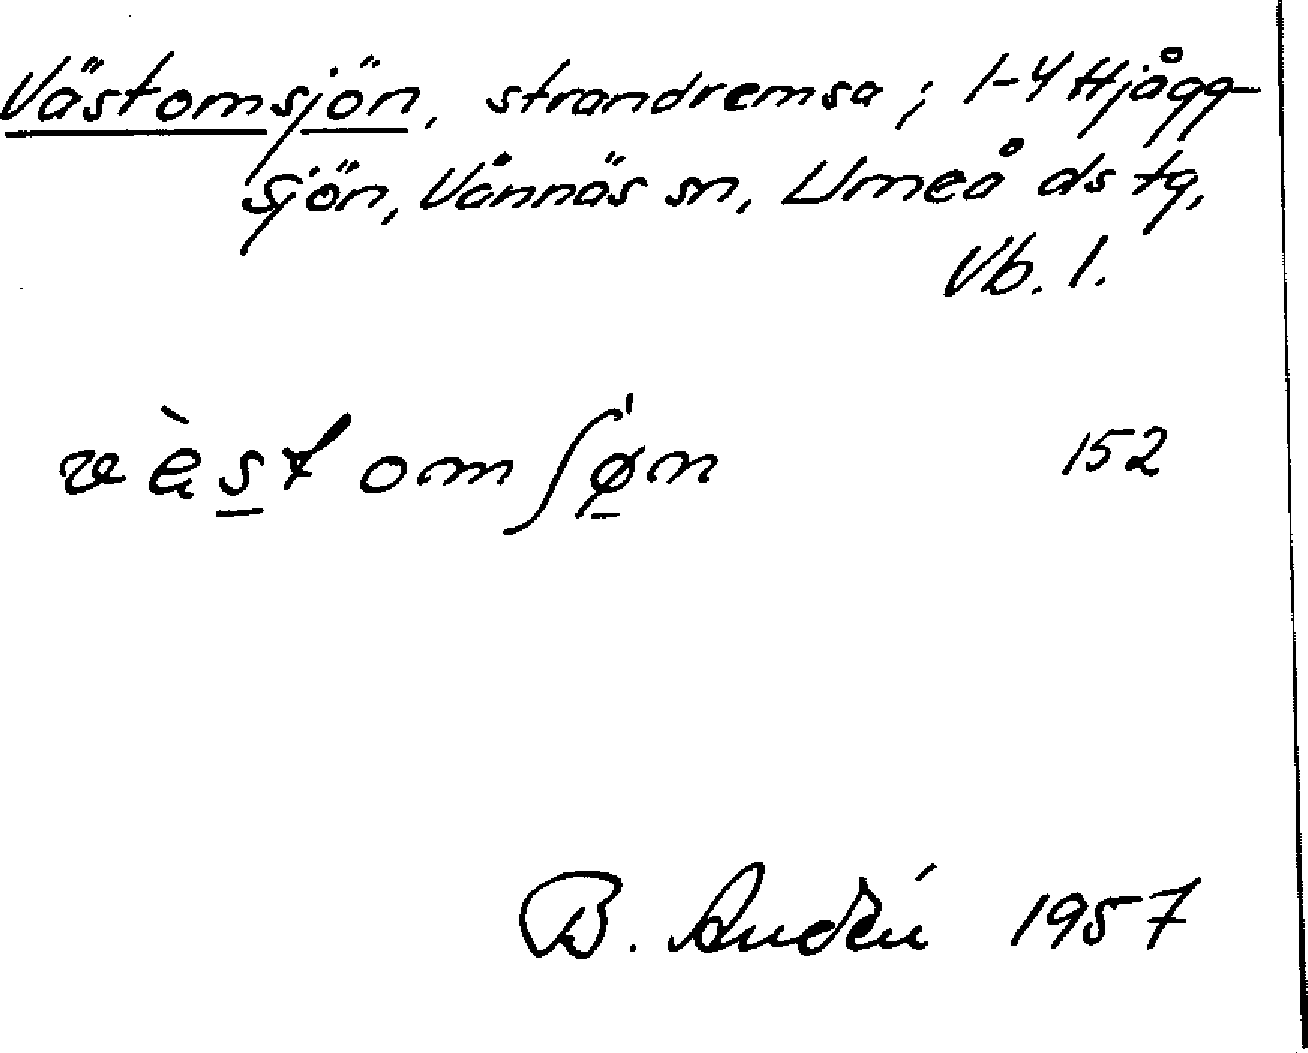 Västomsjön, strandremsa; 1-4 Hjågg-
sjön, Vännäs sn, Umeå ds tg,
Vb. l.
vèst om ʃøn 152
B. 1957